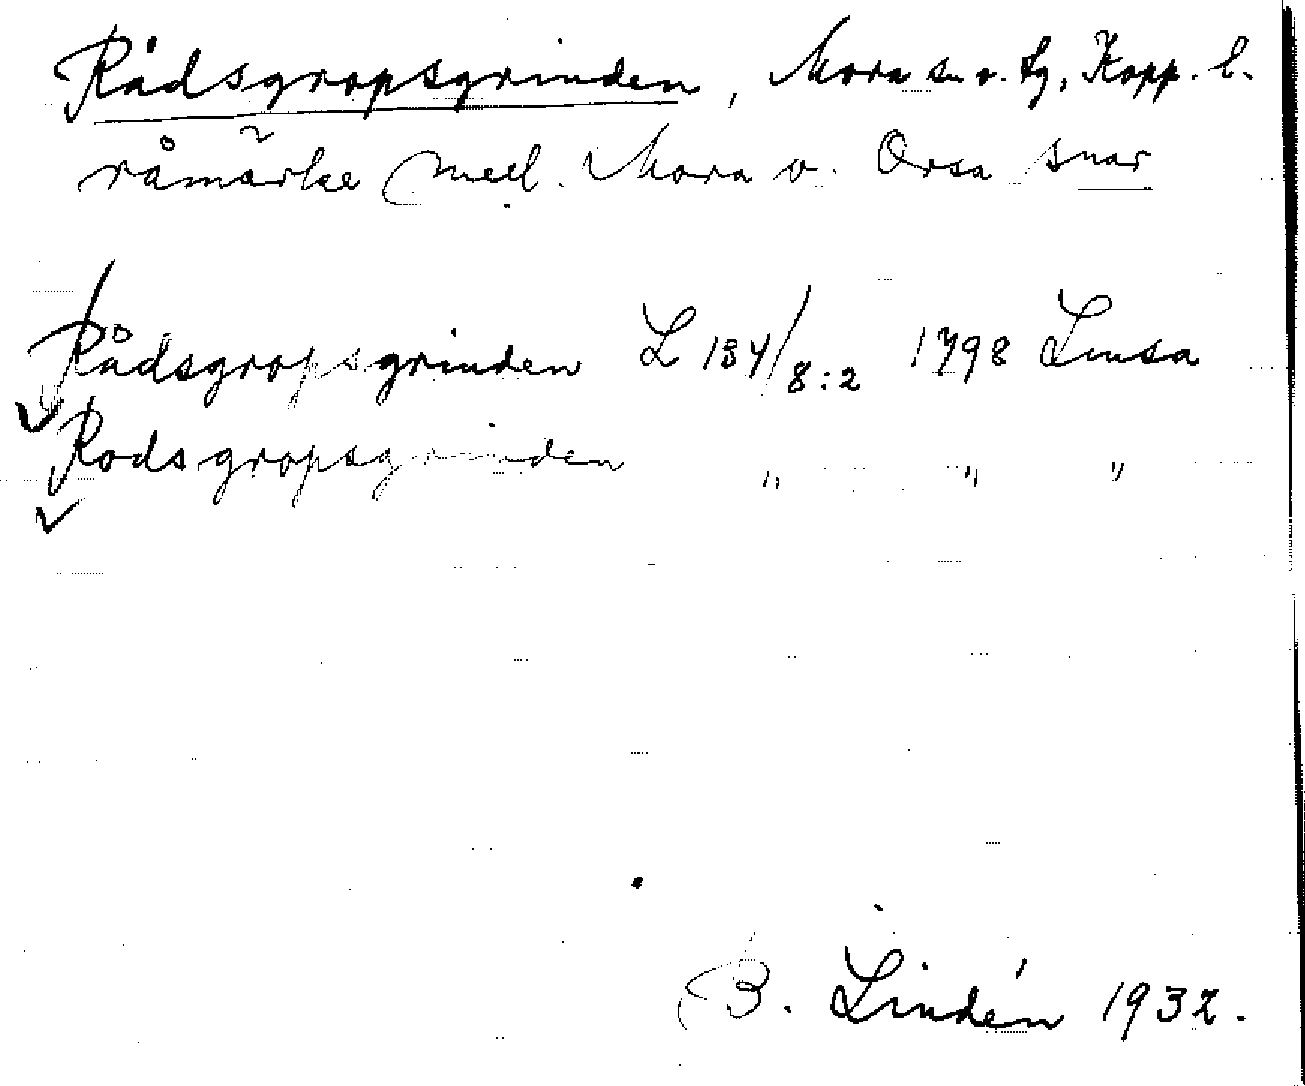 Rådsgropsgrinden, Mora sn o. tg, Kopp. l.
råmärke mell. Mora o. Orsa snar
Rådsgropsgrinden L 134/8:2 1798 Lmsa
Rodsgropsgrinden " " "
B. Lindén 1932.